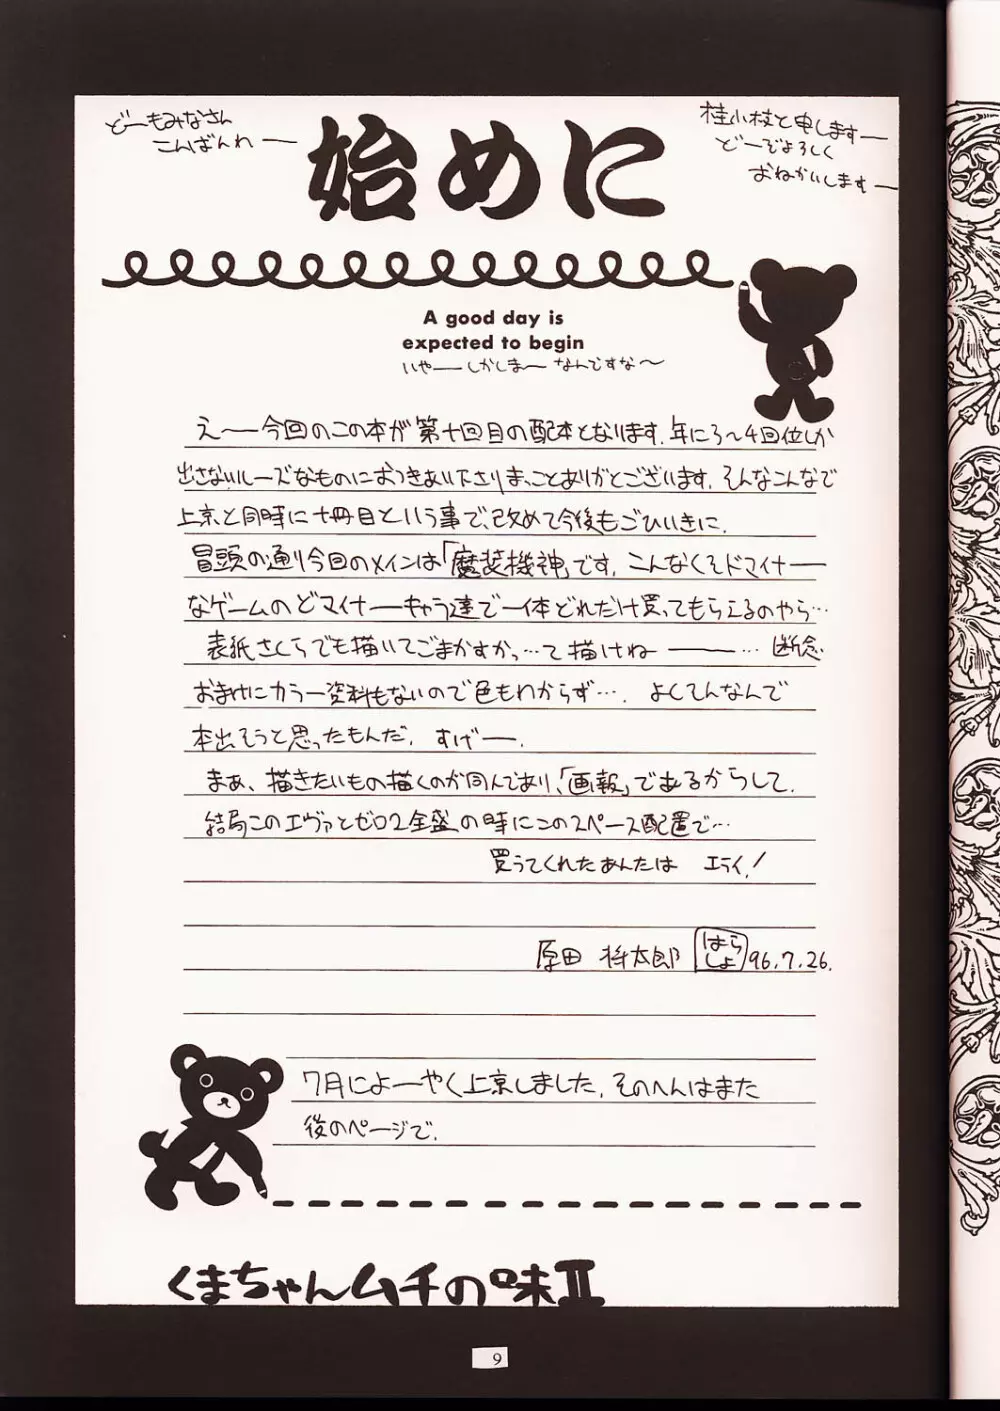 どーもみなさん
こんばんわー
始めに
桂小枝と申しますー
どーぞよろしく
おねがいしますー
A good day is
expected to begin
いやーしかしまーなんですな〜
えー今回のこの本が第十回目の配本となります.年に3〜4回位しか
出さないルーズなものにおつきあい下さりまことにありがとございます.そんなこんなで
上京と同時に十冊目という事で、改めて今後もごひいきに.
冒頭の通り今回のメインは「魔装機神」です.こんなくそドマイナー
なゲームのどマイナーキャラ達で一体どれだけ買ってもらえるのやら…
表紙さくらでも描いてごまかすかっ…て描けねー…断念
おまけにカラー資料もないので色もわからず…. よくてんなんで
本出そうと思ったもんだ. すげー.
まぁ、描きたいもの描くのが同人であり、「画報」であるからして.
結局このエヴァとゼロ2全盛の時にこのスペース配置で…
買うてくれたあんたは エライ!
原田 将太郎 はらしょ 96.7.26.
7月によーやく上京しました.そのへんはまた
後のページで.
くまちゃんムチの味II
9